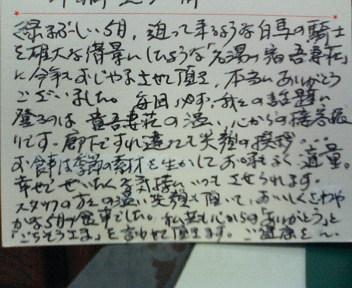 緑まぶしい5月、迫って来るような白馬の騎士
を雄大な背景にしたような「名湯の宿吾妻荘」
に今年もおじゃまさせて頂き、本当にありがとう
ございました。毎回
のは 吾妻荘の温い、心からの接客振
りです。廊下ですれ違っても笑顔の挨拶...
お食事は季節の素材を生かしておいしく適量。
幸せでぜいたくな気持にいつもさせられます。
スタッフの方々の温い笑顔も頂いて、おいしくさわや
かな5月の食事でした。私共も心からの「ありがとう」と
「ごちそうさま」を言わせて頂きます。ご健康を